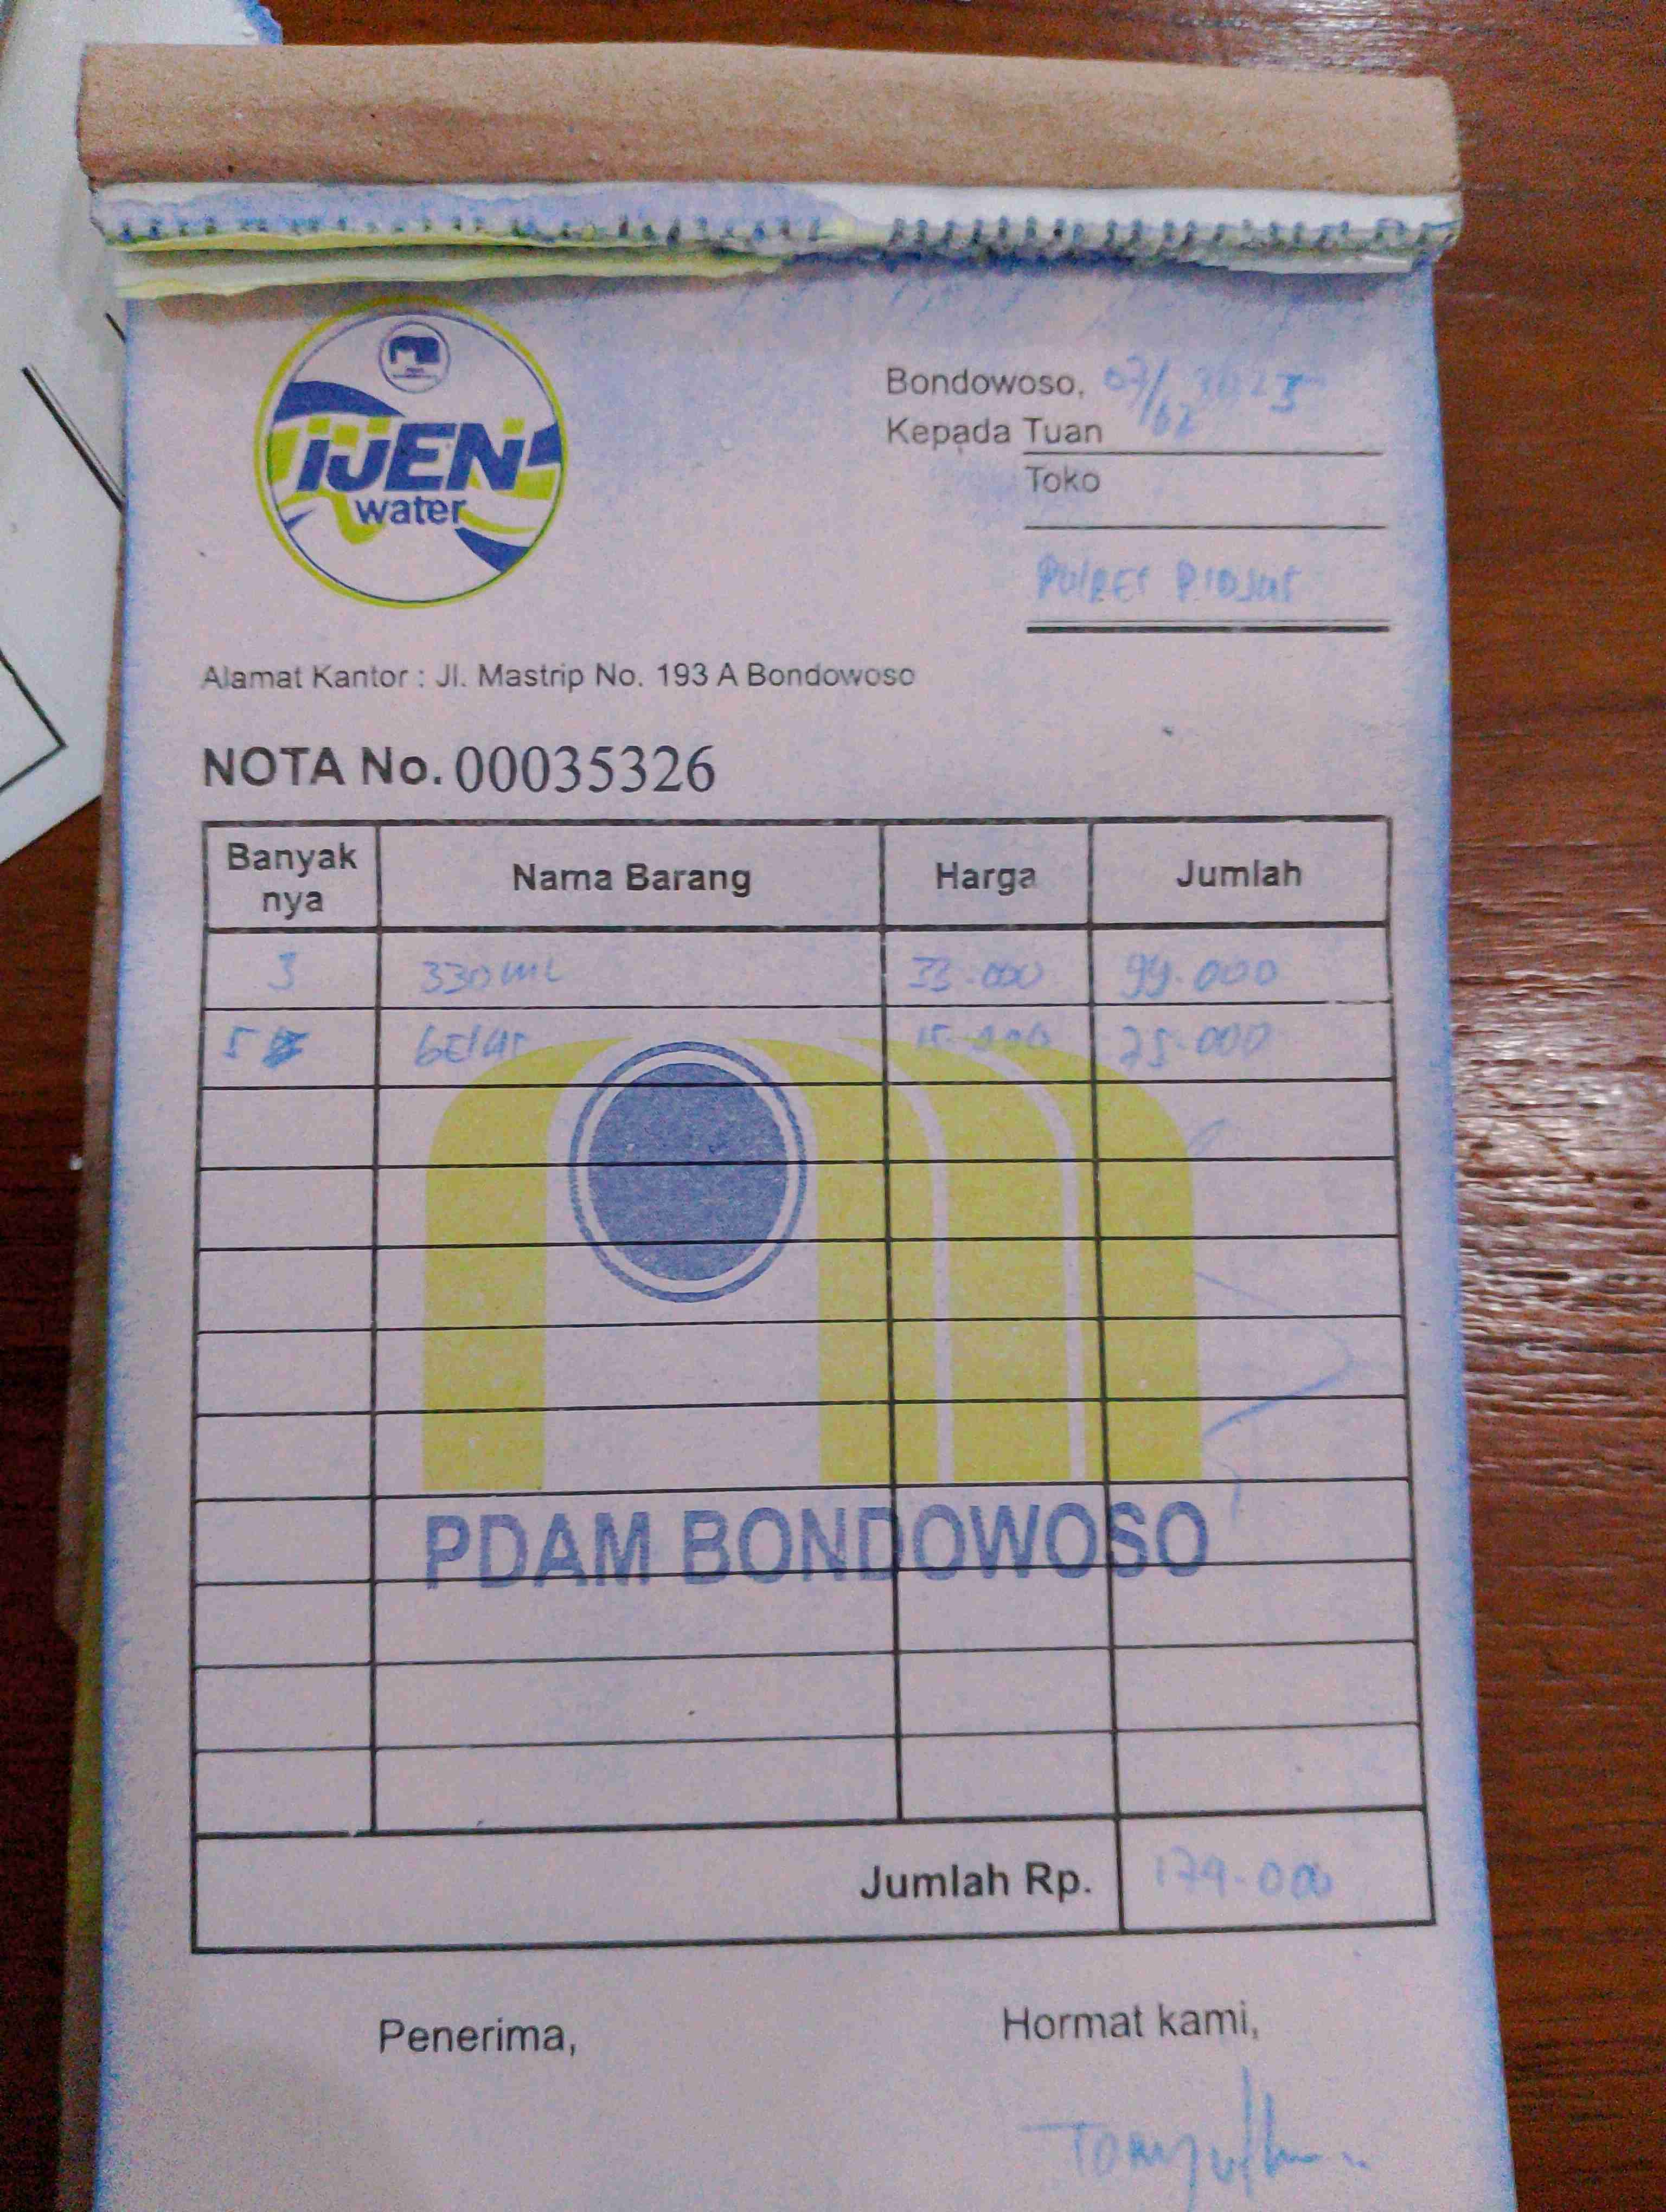 IJEN
water
Bondowoso, 07/02 2025
Kepada Tuan
Toko
POLRES
Alamat Kantor : Jl. Mastrip No. 193 A Bondowoso
NOTA No. 00035326
Banyak nya Nama Barang Harga Jumlah
3 330 ML 33.000 99.000
5 GELAS 15.000 75.000
PDAM BONDOWOSO
Jumlah Rp. 174.000
Penerima, Hormat kami,